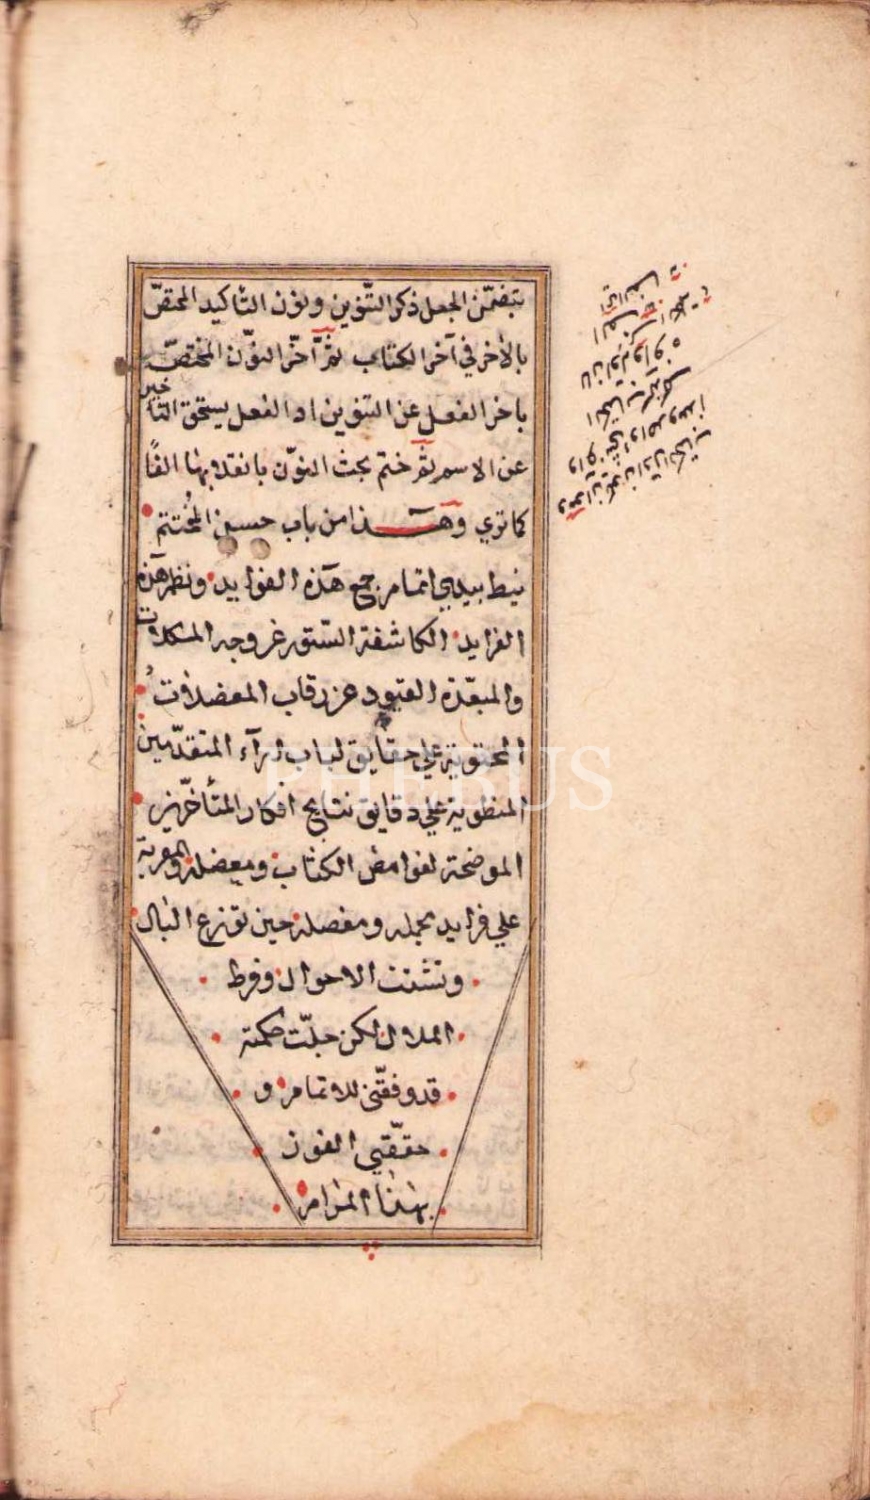 يتضمّن الجعل ذكر التّنوين ونون التأكيد المختصّ
بالآخر في آخر الكتاب ثمّ أخّر النوّن المختصّ
باخر الفعل عن التنوين اذ الفعل يستحق التاخير
عن الاسم ثمّ ختم بحث النوّن بانقلابها الفًا
كما تري وهـذا من باب حسن المُختتم
نيط بيدي اتمام جمع هذه الفوايد ونظم هذه
الفرايد الكاشفة الستور عن وجه المشكلات
والمبعّدة القيود عن رقاب المعضلات
المحتوية علي حقايق لباب اراء المتقدّمين
المنطوية علي دقايق نتايج افكار المتأخّرين
الموضحة لغوامض الكتاب ومعضله والمعربة
علي فرايد مجمله ومفصله حين توزع البال
وتشتت الاحوال وفرط
الملال لكن جلّت حكمته
قد وفقّني للاتمام و
حققّني الفوز
بهذا المرام
PHEBUS